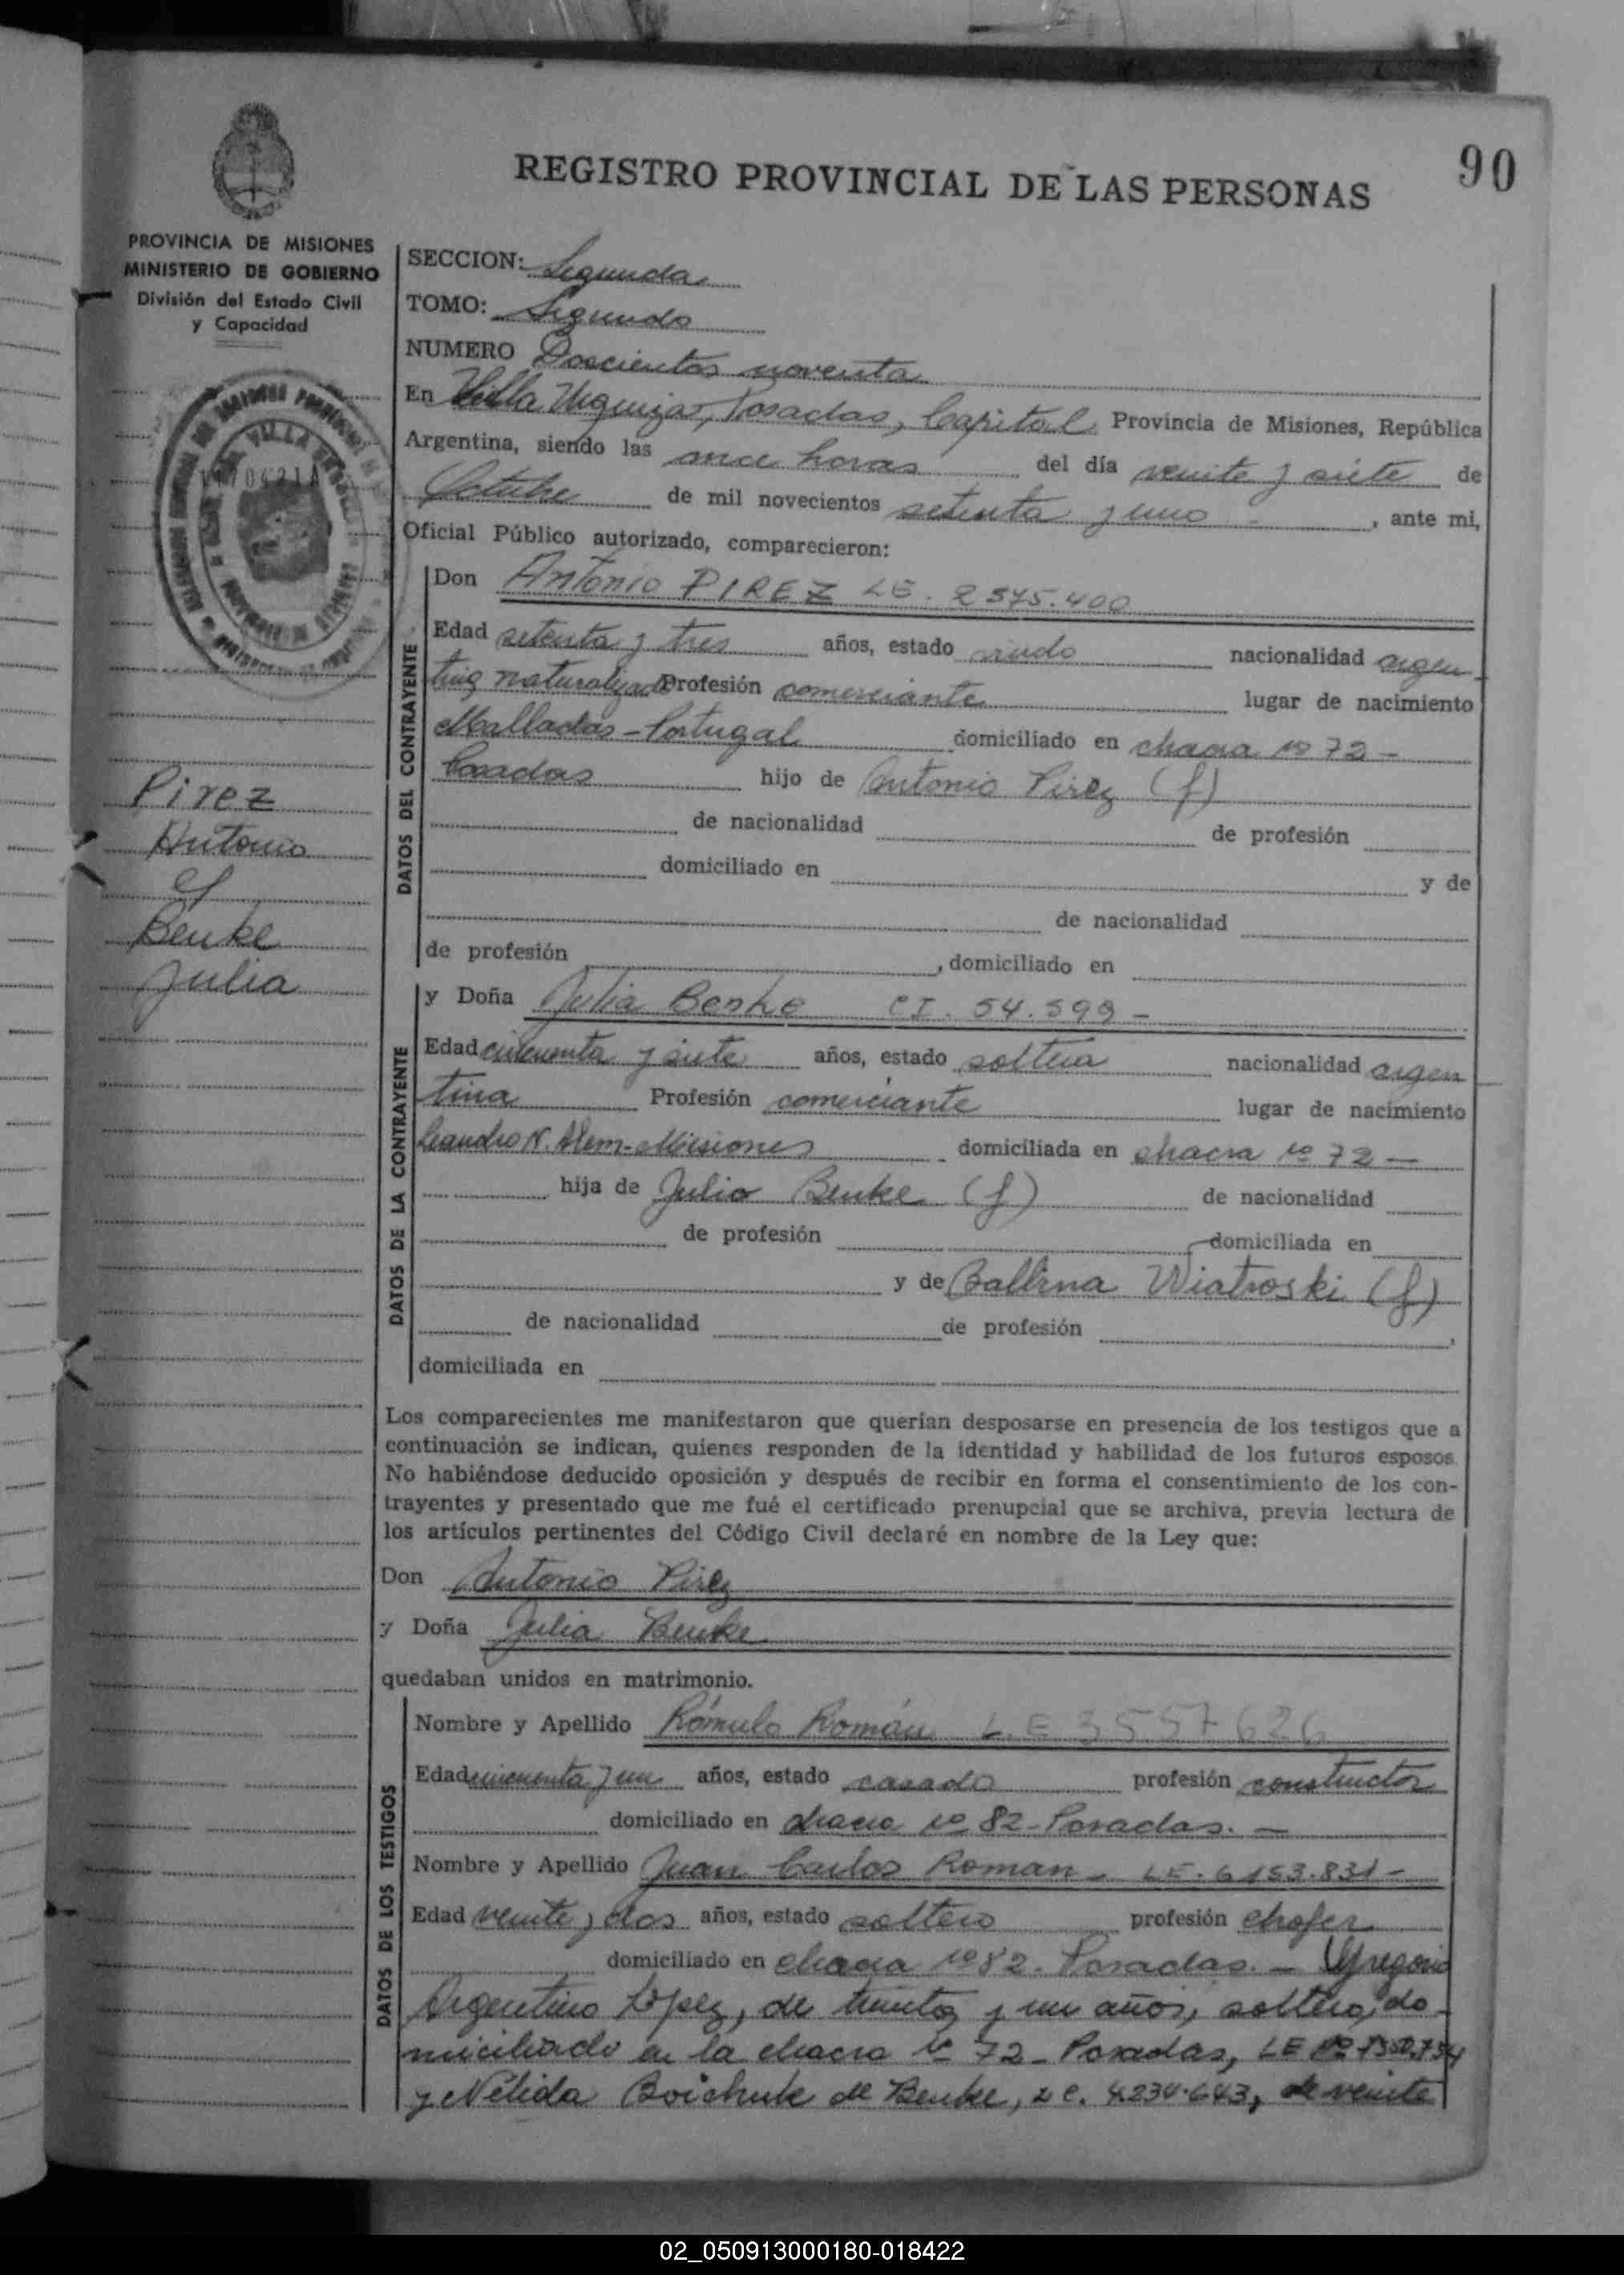 90
REGISTRO PROVINCIAL DE LAS PERSONAS
PROVINCIA DE MISIONES
MINISTERIO DE GOBIERNO
División del Estado Civil
y Capacidad
SECCION: Segunda
TOMO: Segundo
NUMERO Doscientos noventa
En Villa Urquiza, Posadas, Capital Provincia de Misiones, República
Argentina, siendo las once horas del día veinte y siete de
Octubre de mil novecientos setenta y uno - , ante mi,
Oficial Público autorizado, comparecieron:
Pirez
Antonio
Benke
Julia
DATOS DEL CONTRAYENTE
Don Antonio PIREZ LE. 2575.400
Edad setenta y tres años, estado viudo nacionalidad argen
tino naturalizado Profesión comerciante lugar de nacimiento
Malladas - Portugal domiciliado en chacra nº 72 -
Posadas hijo de Antonio Pirez (f)
de nacionalidad de profesión
domiciliado en y de
de nacionalidad
de profesión , domiciliado en
DATOS DE LA CONTRAYENTE
y Doña Julia Benke CI. 54.599 -
Edad cincuenta y siete años, estado soltera nacionalidad argen
tina Profesión comerciante lugar de nacimiento
Leandro N. Alem - Misiones domiciliada en chacra nº 72 -
hija de Julio Benke (f) de nacionalidad
de profesión domiciliada en
y de Balbina Wiatroski (f)
de nacionalidad de profesión ,
domiciliada en
Los comparecientes me manifestaron que querían desposarse en presencia de los testigos que a
continuación se indican, quienes responden de la identidad y habilidad de los futuros esposos.
No habiéndose deducido oposición y después de recibir en forma el consentimiento de los con-
trayentes y presentado que me fué el certificado prenupcial que se archiva, previa lectura de
los artículos pertinentes del Código Civil declaré en nombre de la Ley que:
Don Antonio Pirez
y Doña Julia Benke
quedaban unidos en matrimonio.
DATOS DE LOS TESTIGOS
Nombre y Apellido Rómulo Román L.E 3557626
Edad cincuenta y un años, estado casado profesión constructor
domiciliado en chacra nº 82 - Posadas. -
Nombre y Apellido Juan Carlos Roman - LE. 6153.831 -
Edad veinte y dos años, estado soltero profesión chofer
domiciliado en chacra nº 82 - Posadas. - Gregorio
Argentino López, de treinta y un años, soltero, do-
miciliado en la chacra nº 72 - Posadas, LE Nº
y Nélida Boichuk de Benke, L C. 4.234.643, de veinte
02_050913000180-018422